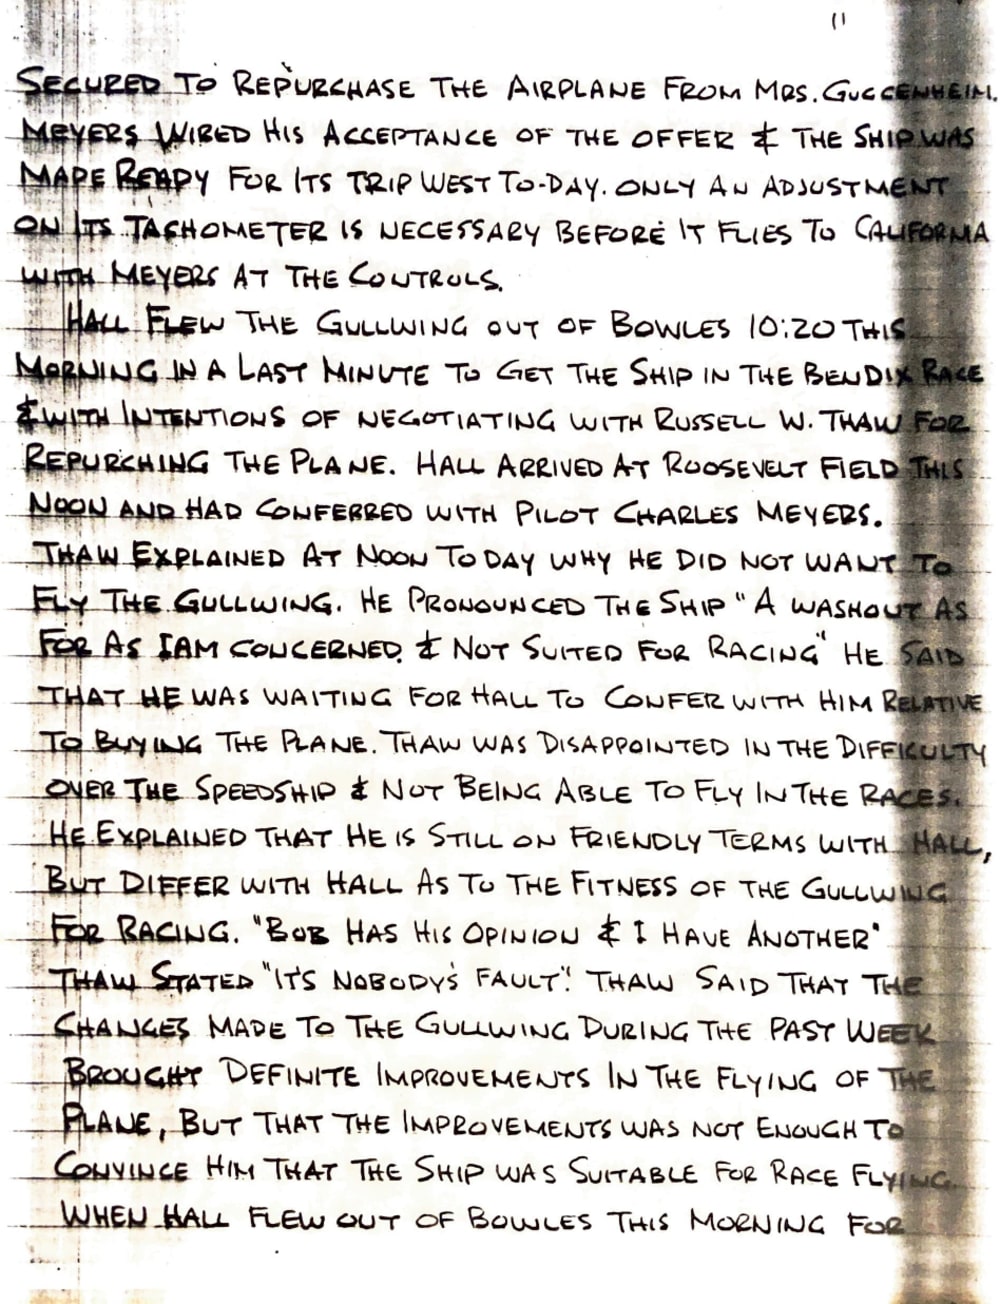 11
SECURED TO REPURCHASE THE AIRPLANE FROM MRS. GUGGENHEIM.
MEYERS WIRED HIS ACCEPTANCE OF THE OFFER & THE SHIP WAS
MADE READY FOR ITS TRIP WEST TO-DAY. ONLY AN ADJUSTMENT
ON ITS TACHOMETER IS NECESSARY BEFORE IT FLIES TO CALIFORNIA
WITH MEYERS AT THE CONTROLS.
HALL FLEW THE GULLWING OUT OF BOWLES 10:20 THIS
MORNING IN A LAST MINUTE TO GET THE SHIP IN THE BENDIX RACE
& WITH INTENTIONS OF NEGOTIATING WITH RUSSELL W. THAW FOR
REPURCHING THE PLANE. HALL ARRIVED AT ROOSEVELT FIELD THIS
NOON AND HAD CONFERRED WITH PILOT CHARLES MEYERS.
THAW EXPLAINED AT NOON TODAY WHY HE DID NOT WANT TO
FLY THE GULLWING. HE PRONOUNCED THE SHIP "A WASHOUT AS
FOR AS I AM CONCERNED. & NOT SUITED FOR RACING" HE SAID
THAT HE WAS WAITING FOR HALL TO CONFER WITH HIM RELATIVE
TO BUYING THE PLANE. THAW WAS DISAPPOINTED IN THE DIFFICULTY
OVER THE SPEEDSHIP & NOT BEING ABLE TO FLY IN THE RACES.
HE EXPLAINED THAT HE IS STILL ON FRIENDLY TERMS WITH HALL,
BUT DIFFER WITH HALL AS TO THE FITNESS OF THE GULLWING
FOR RACING. "BOB HAS HIS OPINION & I HAVE ANOTHER"
THAW STATED "IT'S NOBODY'S FAULT". THAW SAID THAT THE
CHANGES MADE TO THE GULLWING DURING THE PAST WEEK
BROUGHT DEFINITE IMPROVEMENTS IN THE FLYING OF THE
PLANE, BUT THAT THE IMPROVEMENTS WAS NOT ENOUGH TO
CONVINCE HIM THAT THE SHIP WAS SUITABLE FOR RACE FLYING.
WHEN HALL FLEW OUT OF BOWLES THIS MORNING FOR